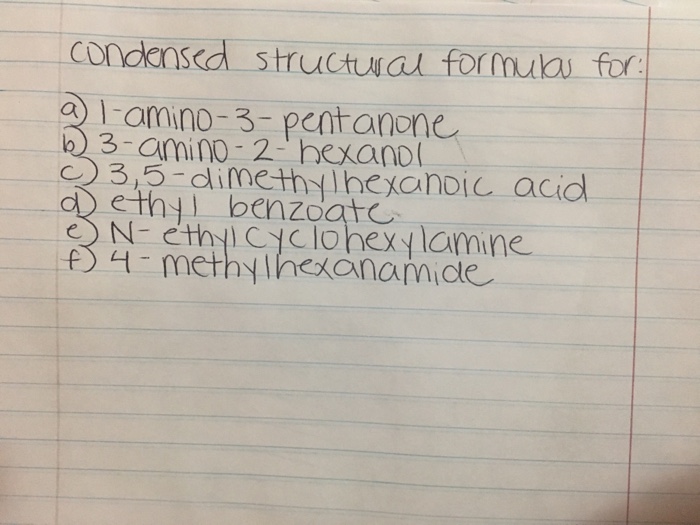 condensed structural formulas for:
a) 1-amino-3-pentanone
b) 3-amino-2-hexanol
c) 3,5-dimethylhexanoic acid
d) ethyl benzoate
e) N-ethylcyclohexylamine
f) 4-methylhexanamide